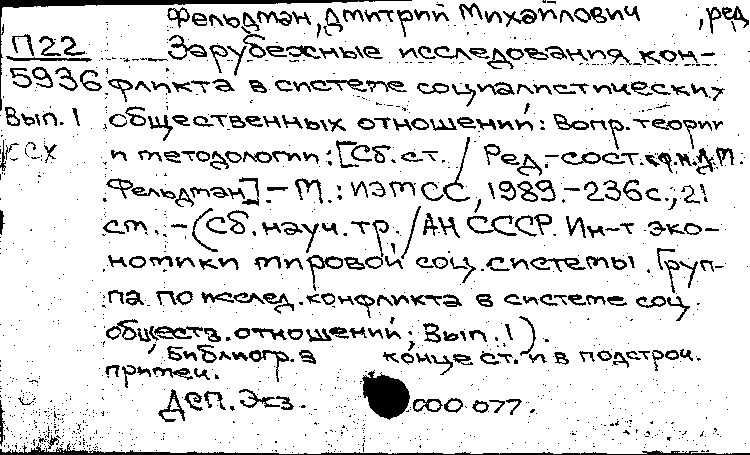 Фельдман, Дмитрий Михайлович, ред
П22 Зарубежные исследования кон-
5936 фликта в системе социалистических
Вып. 1 общественных отношений: Вопр. теории
ССХ и методологии: [Сб. ст. / Ред.-сост. к.ф.н. Д.М.
Фельдман]. – М.: ИЭМСС, 1989. – 236 с.; 21
см. – (Сб. науч. тр. / АН СССР. Ин-т эко-
номики мировой соц. системы. Груп-
па по исслед. конфликта в системе соц.
обществ. отношений; Вып. 1).
Библиогр. в конце ст. и в подстроч.
примеч.
ДСП. Экз. 000 077.